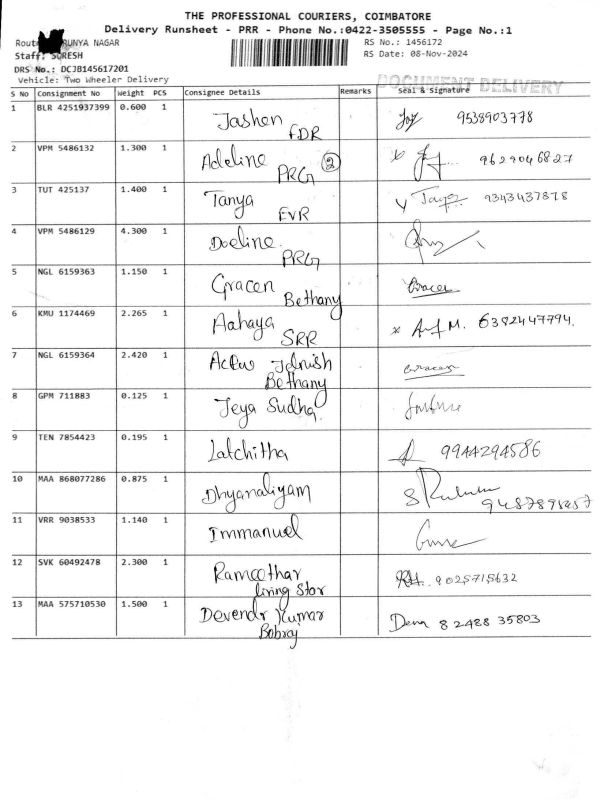 THE PROFESSIONAL COURIERS, COIMBATORE
Delivery Runsheet - PRR - Phone No.:0422-3505555 - Page No.:1
RUNYA NAGAR RS No.: 1456172
Staff: SURESH RS Date: 08-Nov-2024
DRS No.: DCJB145617201
Vehicle: Two Wheeler Delivery DOCUMENT DELIVERY
S No Consignment No Weight PCS Consignee Details Remarks Seal & signature
1 BLR 4251937399 0.600 1 Jashen 9538903778
FDR
2 VPM 5486132 1.300 1 Adeline 2 9629046827
PRG
3 TUT 425137 1.400 1 Tanya 9343437878
EVR
4 VPM 5486129 4.300 1 Doeline
PRG
5 NGL 6159363 1.150 1 Gracen Gracen
Bethany
6 KMU 1174469 2.265 1 Aahaya 6382447794.
SRR
7 NGL 6159364 2.420 1
Bethany
8 GPM 711883 0.125 1 Jeya Sudha
9 TEN 7854423 0.195 1 Latchitha 9944294586
10 MAA 868077286 0.875 1 Dhyanaliyam
11 VRR 9038533 1.140 1 Immanuel
12 SVK 60492478 2.300 1 9025715632
living Star
13 MAA 575710530 1.500 1 Devendr Kumar 82488 35803
Bobraj